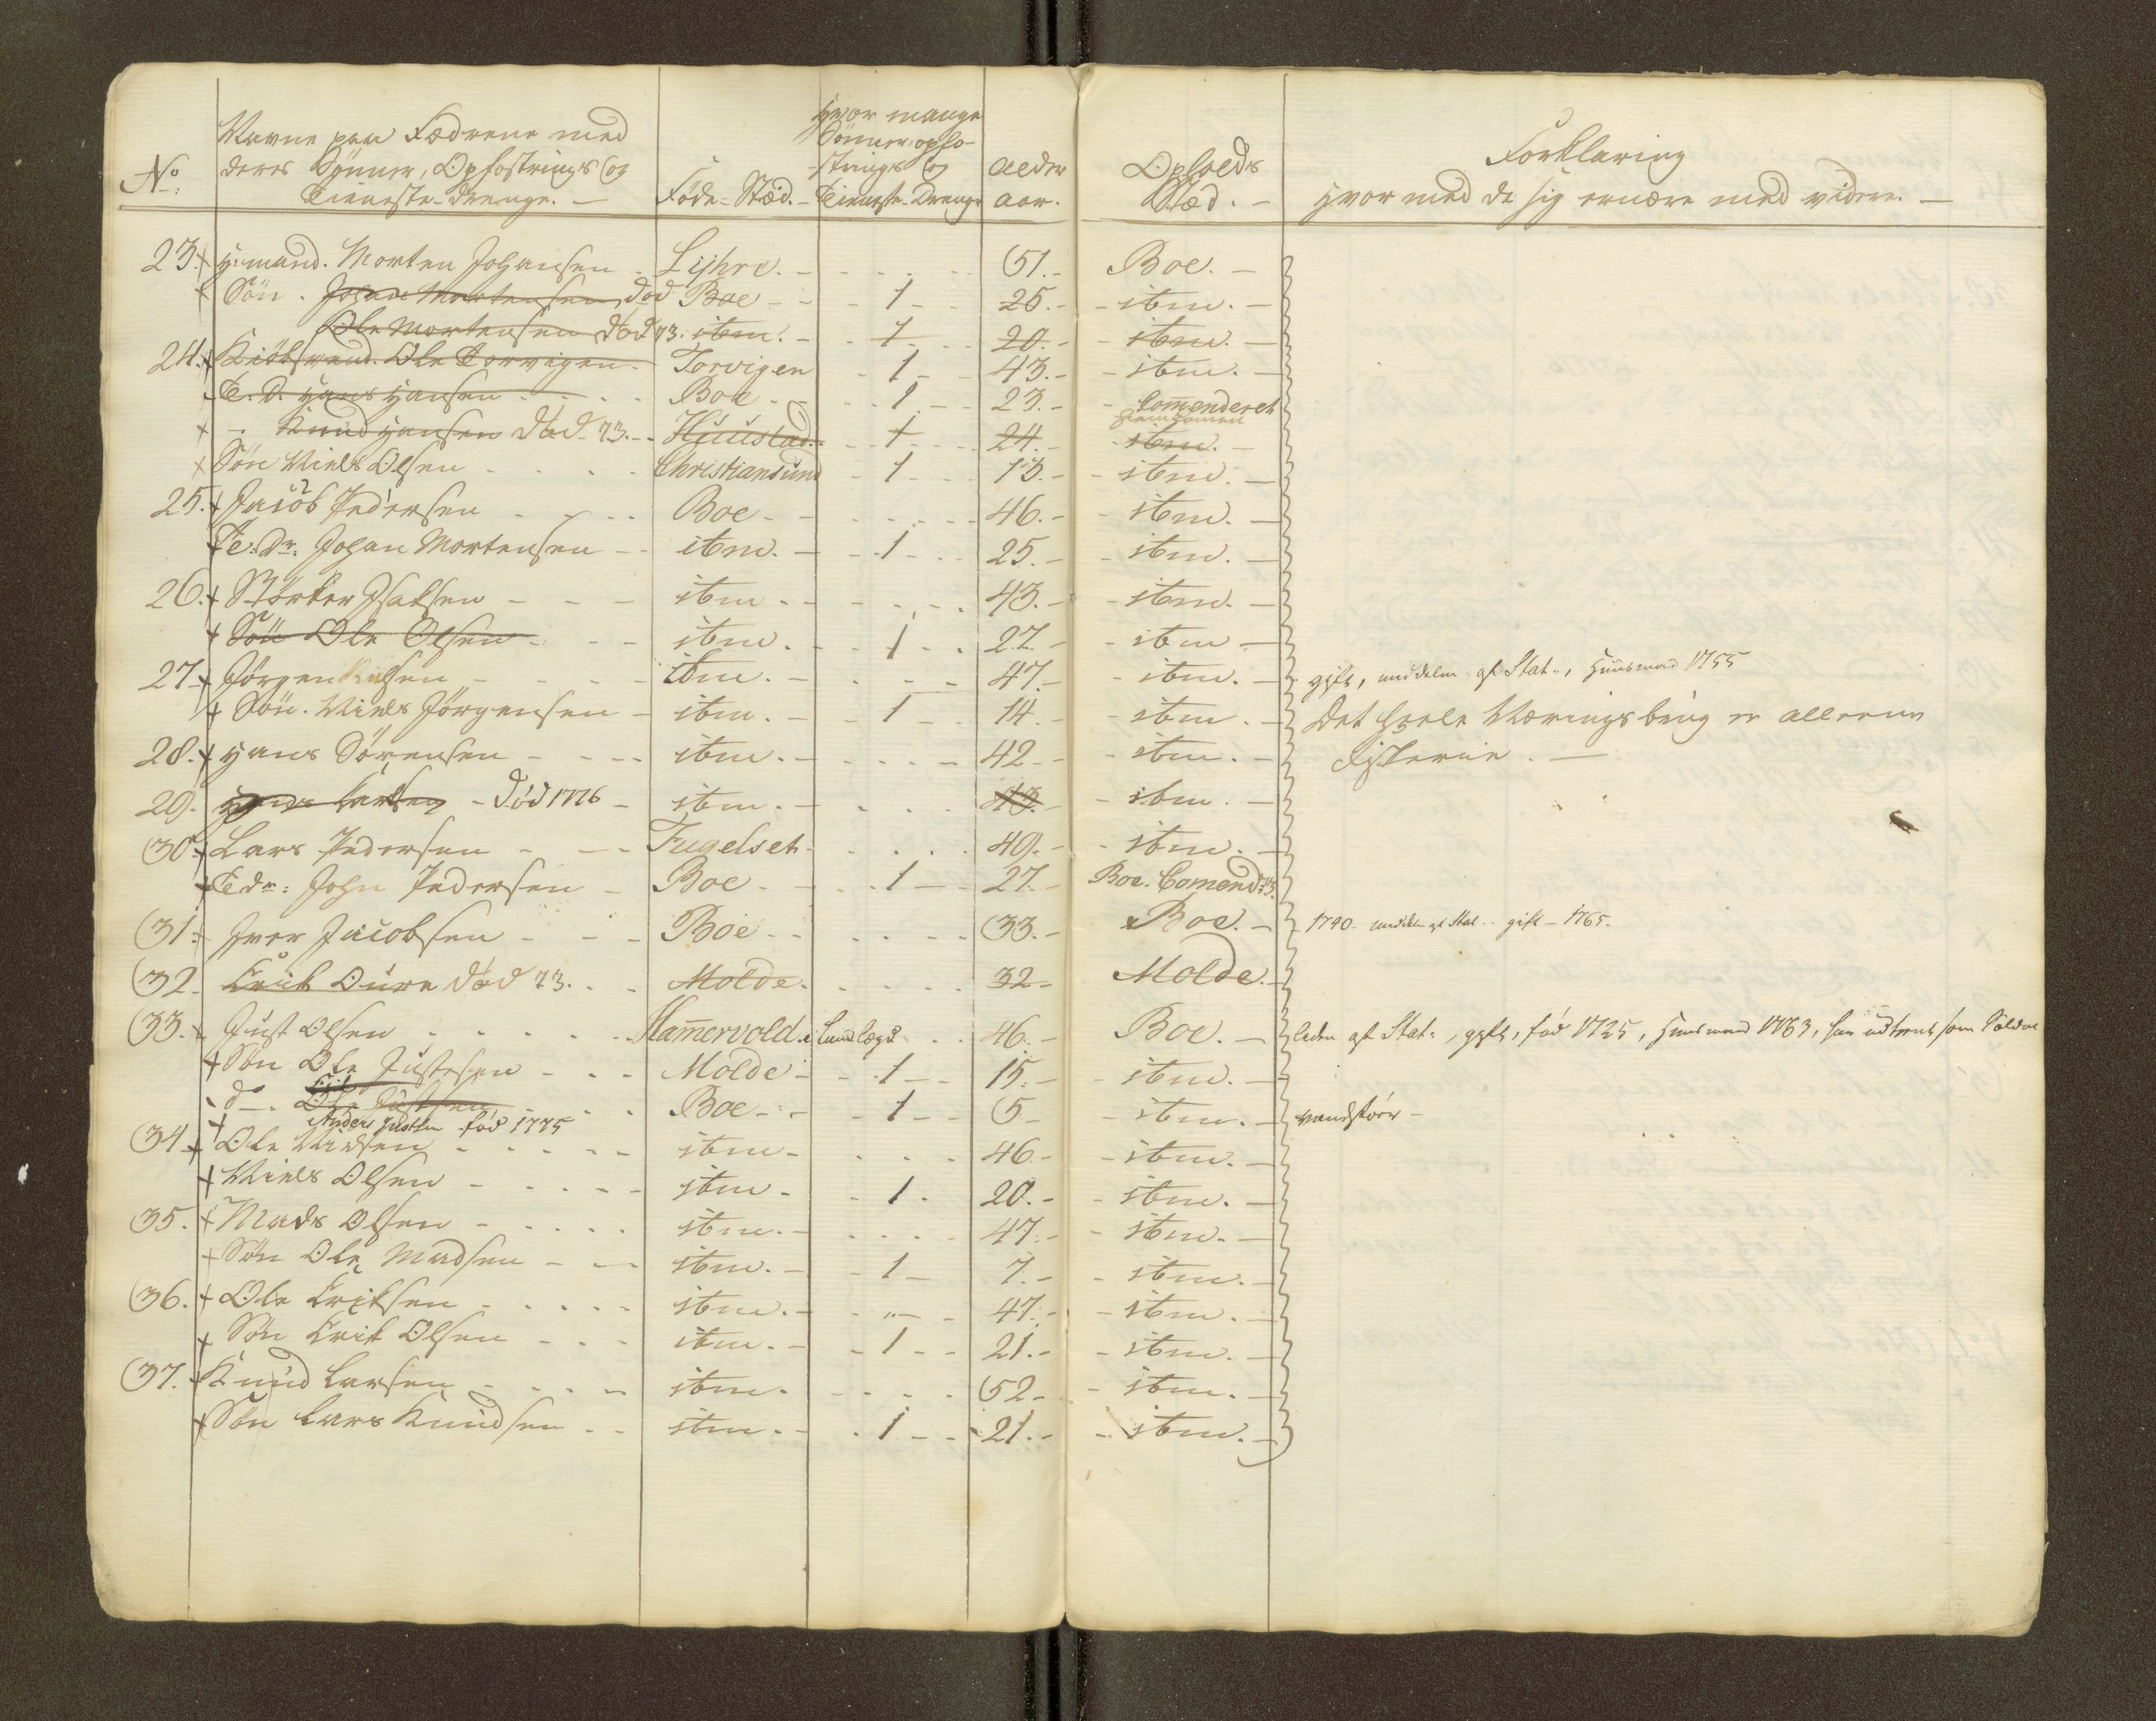 No:
Navne paa Fædrene med
deres Sönner, Opfostrings og
Tieneste-Drenge. –
Föde-Stæd. –
Hvor mange
Sönner, opfo-
strings og
Tieneste-Drenge
alder
aar.
Opholds
Stæd. –
Forklaring
hvor med de sig ernære med videre. –
23. + H:mand. Morten Johansen - Lijhre. - 51. - Boe. -
+ Sön. Johan Mortensen, död Boe - 1 - 25. - itm. -
Ole Mortensen död 73. itm. - 1 - 20. - itm. -
24. + Ole Torvigen. Torvigen - 1 - 43. - itm. -
T. D. Hans Hansen - Boe. - 1 - 23. - Comenderet
hiemkomen
+ - Knud Hansen död 73. - Huustad - 1 - 24. - itm. -
+ Sön Niels Olsen - Christiansund - 1 - 13. - itm. -
25. + Jacob Pedersen - Boe - 46. - itm. -
Te: Dr. Johan Mortensen - itm. - 1 - 25. - itm. -
26. + Störker Isaksen - itm. - 43. - itm. -
+ Sön Ole Olsen - itm. - 1 - 27. - itm -
27. + Jörgen Nilsen - itm. - 47. - itm. - gift, af Stat., Huusmand 1755
+ Sön. Niels Jörgensen - itm. - 1 - 14. - itm. - Det heele Næringsbrug er alleene
28. + Hans Sörensen - itm. - 42 - itm. - Fiskerie. -
29. Larsen - död 1776 - itm. - 43. - itm. -
30. + Lars Pedersen - Fugelset - 49. - itm. -
+ T dr: John Pedersen - Boe - 1 - 27. - Boe. Comend 73.
31. + Iver Jacobsen - Boe - 33. - Boe. - 1740 - af Stat - gift - 1765.
32. Erik Oure död 73. - Molde. - 32 - Molde. -
33. + Just Olsen - Hamervold. i Lægd - 46. - Boe. - liden af Stat:, gift, föd 1725, Huusmand 1763, har udtient som Soldat
+ Sön Ole Justesen - Molde - 1 - 15. - itm. -
do - Ole Justsen - Boe - 1 - 5 - itm. -
+ Anders Justsen föd 1775
34. + Ole Nielsen - itm - 46. - itm. -
+ Niels Olsen - itm - 1. 20. - itm. -
35. + Mads Olsen - itm. - 47. - itm. -
+ Sön Ole Madsen - itm. - 1 - 7. - itm. -
36. + Ole Eriksen - itm. - 47. - itm. -
+ Sön Erik Olsen - itm. - 1 - 21. - itm. -
37. + Knud Larsen - itm. - 52. - itm. -
+ Sön Lars Knudsen - itm. - 1 - 21. - itm. -